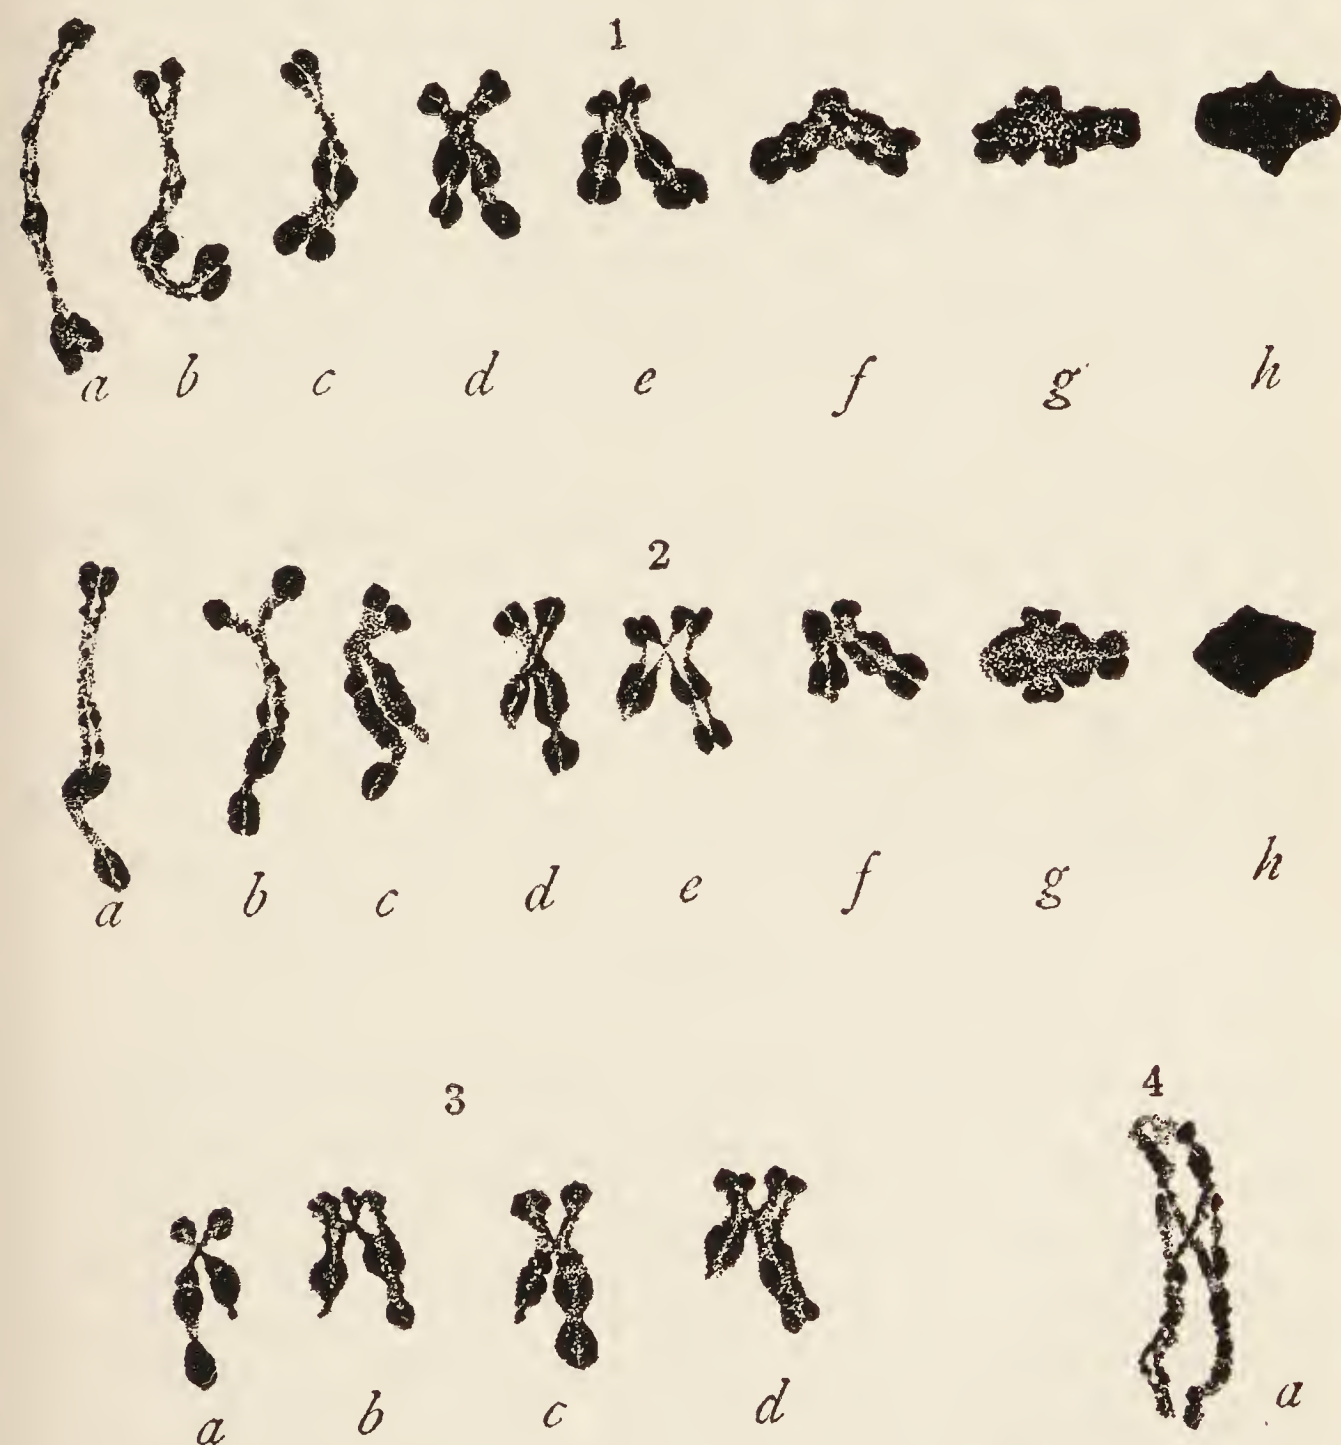 1
a b c d e f g h
2
a b c d e f g h
3
4
a b c d a